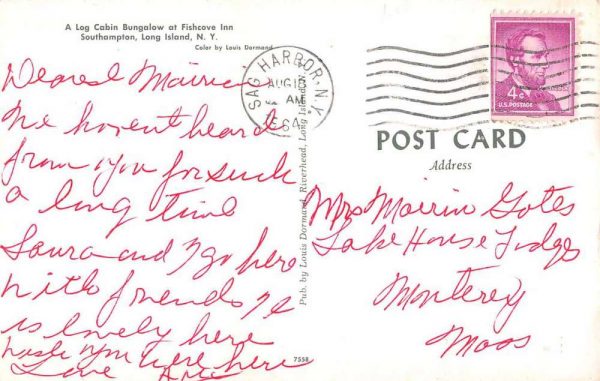 A Log Cabin Bungalow at Fishcove Inn
Southampton, Long Island, N. Y.
Color by Louis Dormand
SAG HARBOR, N.Y.
AUG 10
AM
1964
4¢
U.S. POSTAGE
POST CARD
Address
Dearest
We havent heard
from you for such
a long time
Laura and I go here
with friends
is lovely here
wish you were here
Love
Pub. by Louis Dormand, Riverhead, Long Island, N.Y.
7558
Mrs
Lake House Lodges
Monterey
Mass